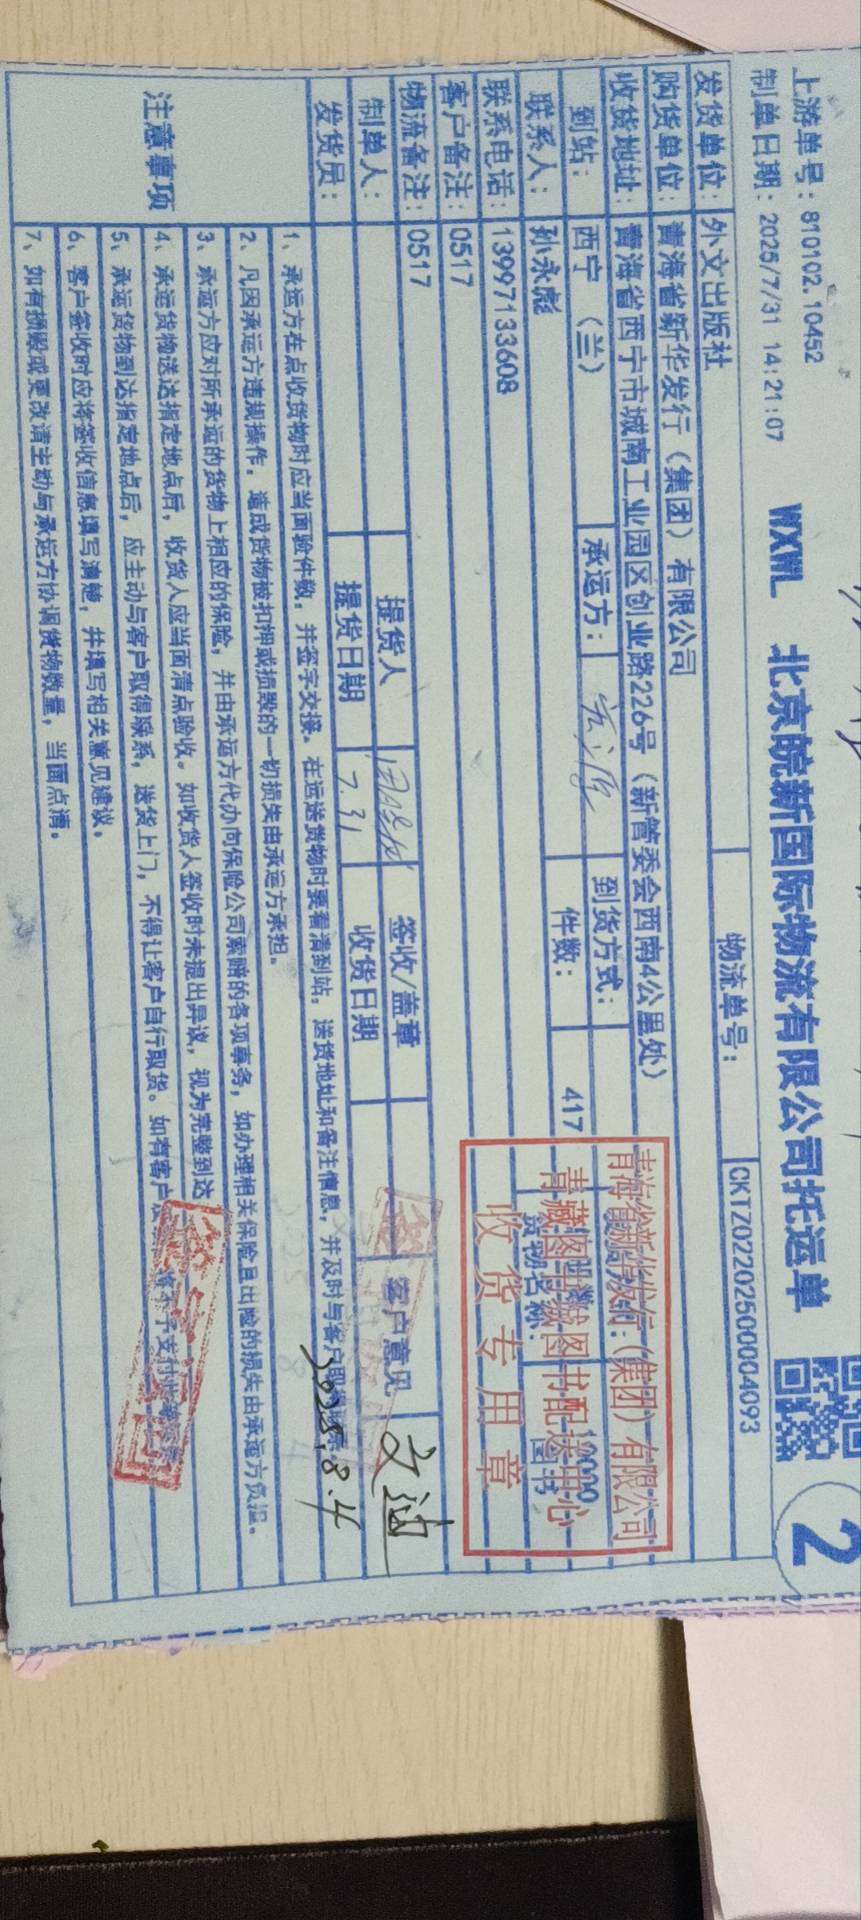 上游单号：810102.10452
WXWL 北京皖新国际物流有限公司托运单
2
制单日期：2025/7/31 14:21:07
物流单号：CKTZ0220250004093
发货单位：外文出版社
购货单位：青海省新华发行（集团）有限公司
收货地址：青海省西宁市城南工业园区创业路226号（新管委会西南4公里处）
到站：西宁（兰） 承运方： 到货方式：
联系人：孙永彪 件数：417 货物名称：图书
联系电话：13997133608
客户备注：0517
物流备注：0517
青海省新华发行（集团）有限公司
青藏图书城图书配送中心
收货专用章
制单人： 提货人 签收/盖章 客户意见
发货员： 提货日期 7.31 收货日期 2025.8.4
注意事项
1、承运方在点收货物时应当面验件数，并签字交接。在运送货物时要看清到站，送货地址和备注信息，并及时与客户
2、凡因承运方违规操作，造成货物被扣押或损毁的一切损失由承运方承担。
3、承运方应对所承运的货物上相应的保险，并由承运方代办向保险公司索赔的各项事务，如办理相关保险且出险的损失由承运方负担。
4、承运货物送达指定地点后，收货人应当面清点验收。如收货人签收时未提出异议，视为完整到达
5、承运货物到达指定地点后，应主动与客户取得联系，送货上门，不得让客户自行取货。如有客户
6、客户签收时应将签收信息填写清楚，并填写相关意见建议。
7、如有损毁或更改请主动与承运方协调货物数量，当面点清。